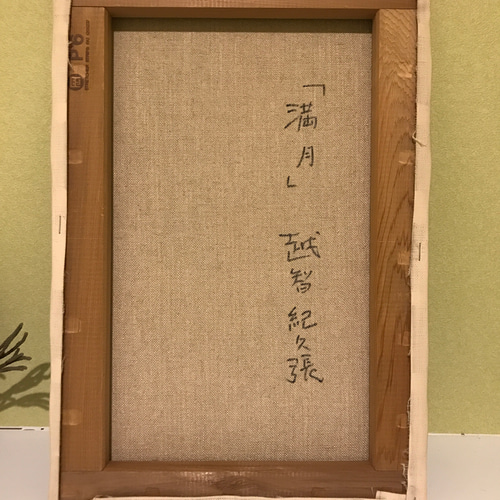 「満月」 越智紀久張
P6